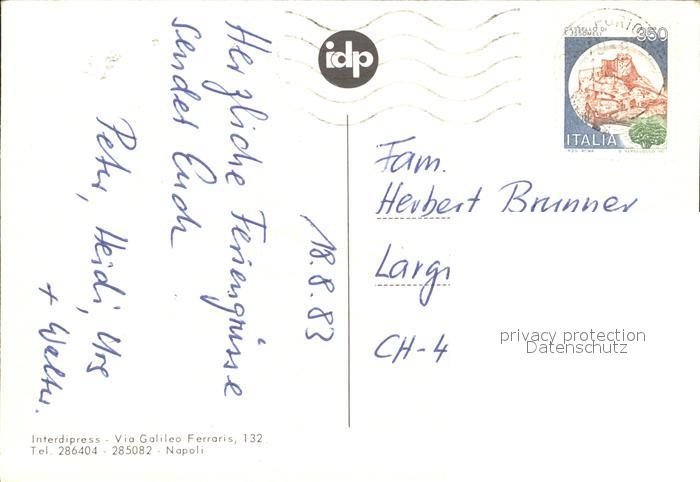 Herzliche Feriengrüsse
sendet Euch
Peter, Heidi, Urs
+ Walter.
18.8.83
idp
Fam.
Herbert Brunner
CH-4
privacy protection
Datenschutz
ITALIA
Interdipress - Via Galileo Ferraris, 132
Tel. 286404 - 285082 - Napoli